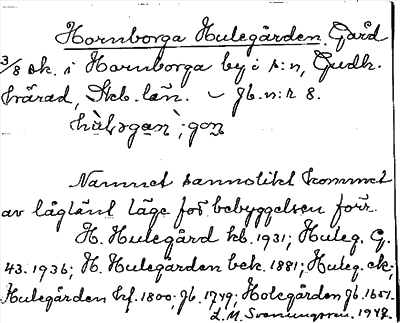 Hornborga Hulegården. Gård
3/8 sk. i Hornborga by i s:n, Gudh.
härad, Skb. län. – Jb. n:r 8.
Namnet sannolikt kommet
av låglänt läge för bebyggelsen förr.
H. Hulegård kb. 1931; Huleg. G.
43. 1936; H. Hulegården bek. 1881; Huleg. ek;
Hulegården hf. 1800. Jb. 1749; Holegården Jb. 1651.
L. M. Svenungsson. 1947.